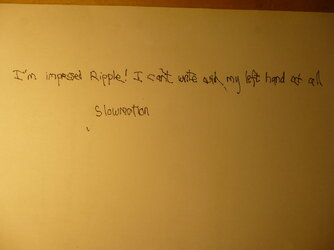 I'm impressed Ripple! I can't write with my left hand at all
Slowmotion